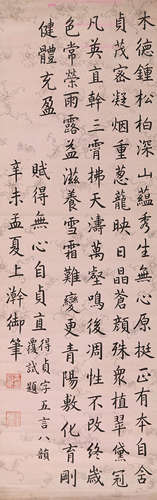 木德鍾松柏深山蘊秀生無心原挺正有本自含
貞茂密凝烟重蔥蘢映日晶蒼顔殊眾植翠黛冠
凡英直幹三霄拂天濤萬壑鳴性不改終歲
色常榮雨露益滋養雪霜難變更青陽敷化育剛
健體充盈
賦得無心自貞直
得貞字五言八韻
覆試題
辛未孟夏上澣御筆